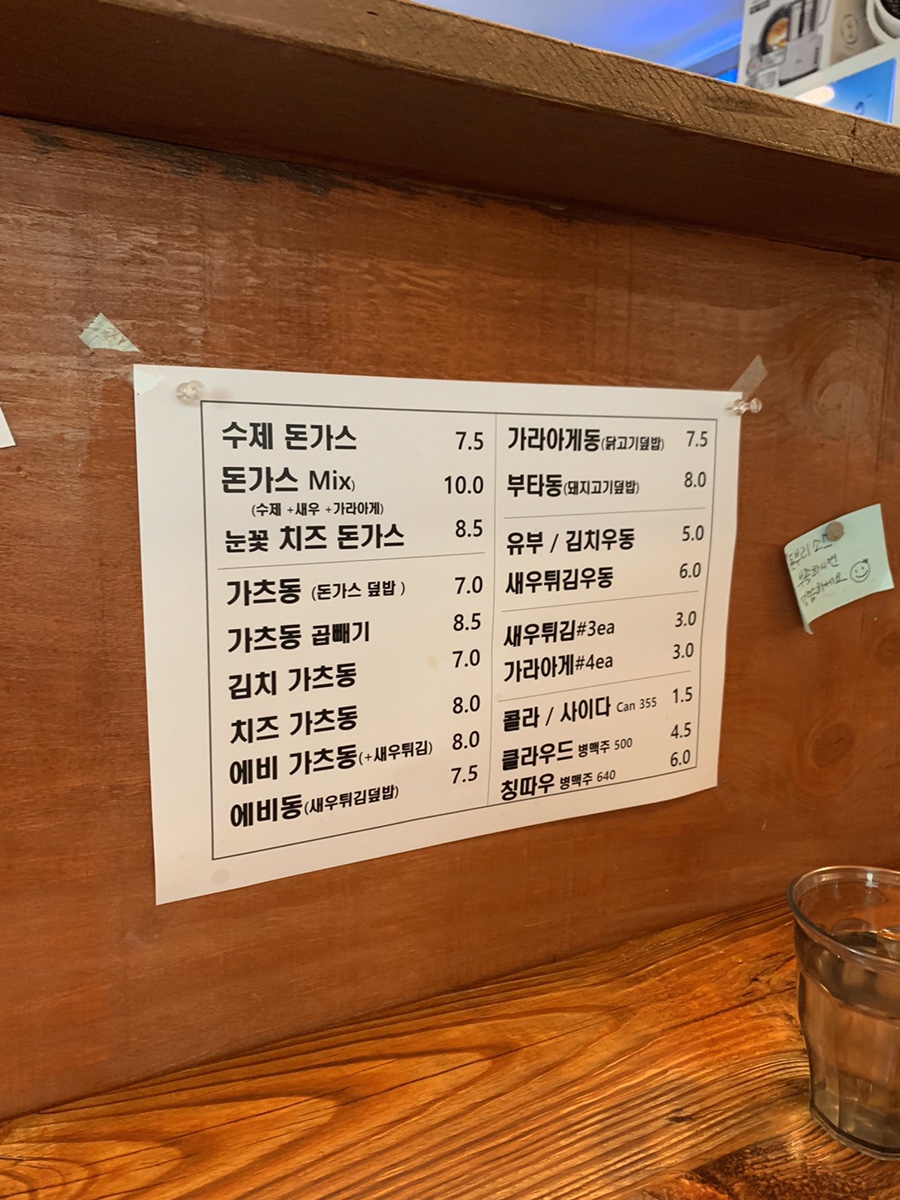 수제 돈가스 7.5
돈가스 Mix) 10.0
(수제 +새우 +가라아게)
눈꽃 치즈 돈가스 8.5
가츠동 (돈가스 덮밥 ) 7.0
가츠동 곱빼기 8.5
김치 가츠동 7.0
치즈 가츠동 8.0
에비 가츠동(+새우튀김) 8.0
에비동(새우튀김덮밥) 7.5
가라아게동(닭고기덮밥) 7.5
부타동(돼지고기덮밥) 8.0
유부 / 김치우동 5.0
새우튀김우동 6.0
새우튀김#3ea 3.0
가라아게#4ea 3.0
콜라 / 사이다 Can 355 1.5
클라우드 병맥주 500 4.5
칭따우 병맥주 640 6.0